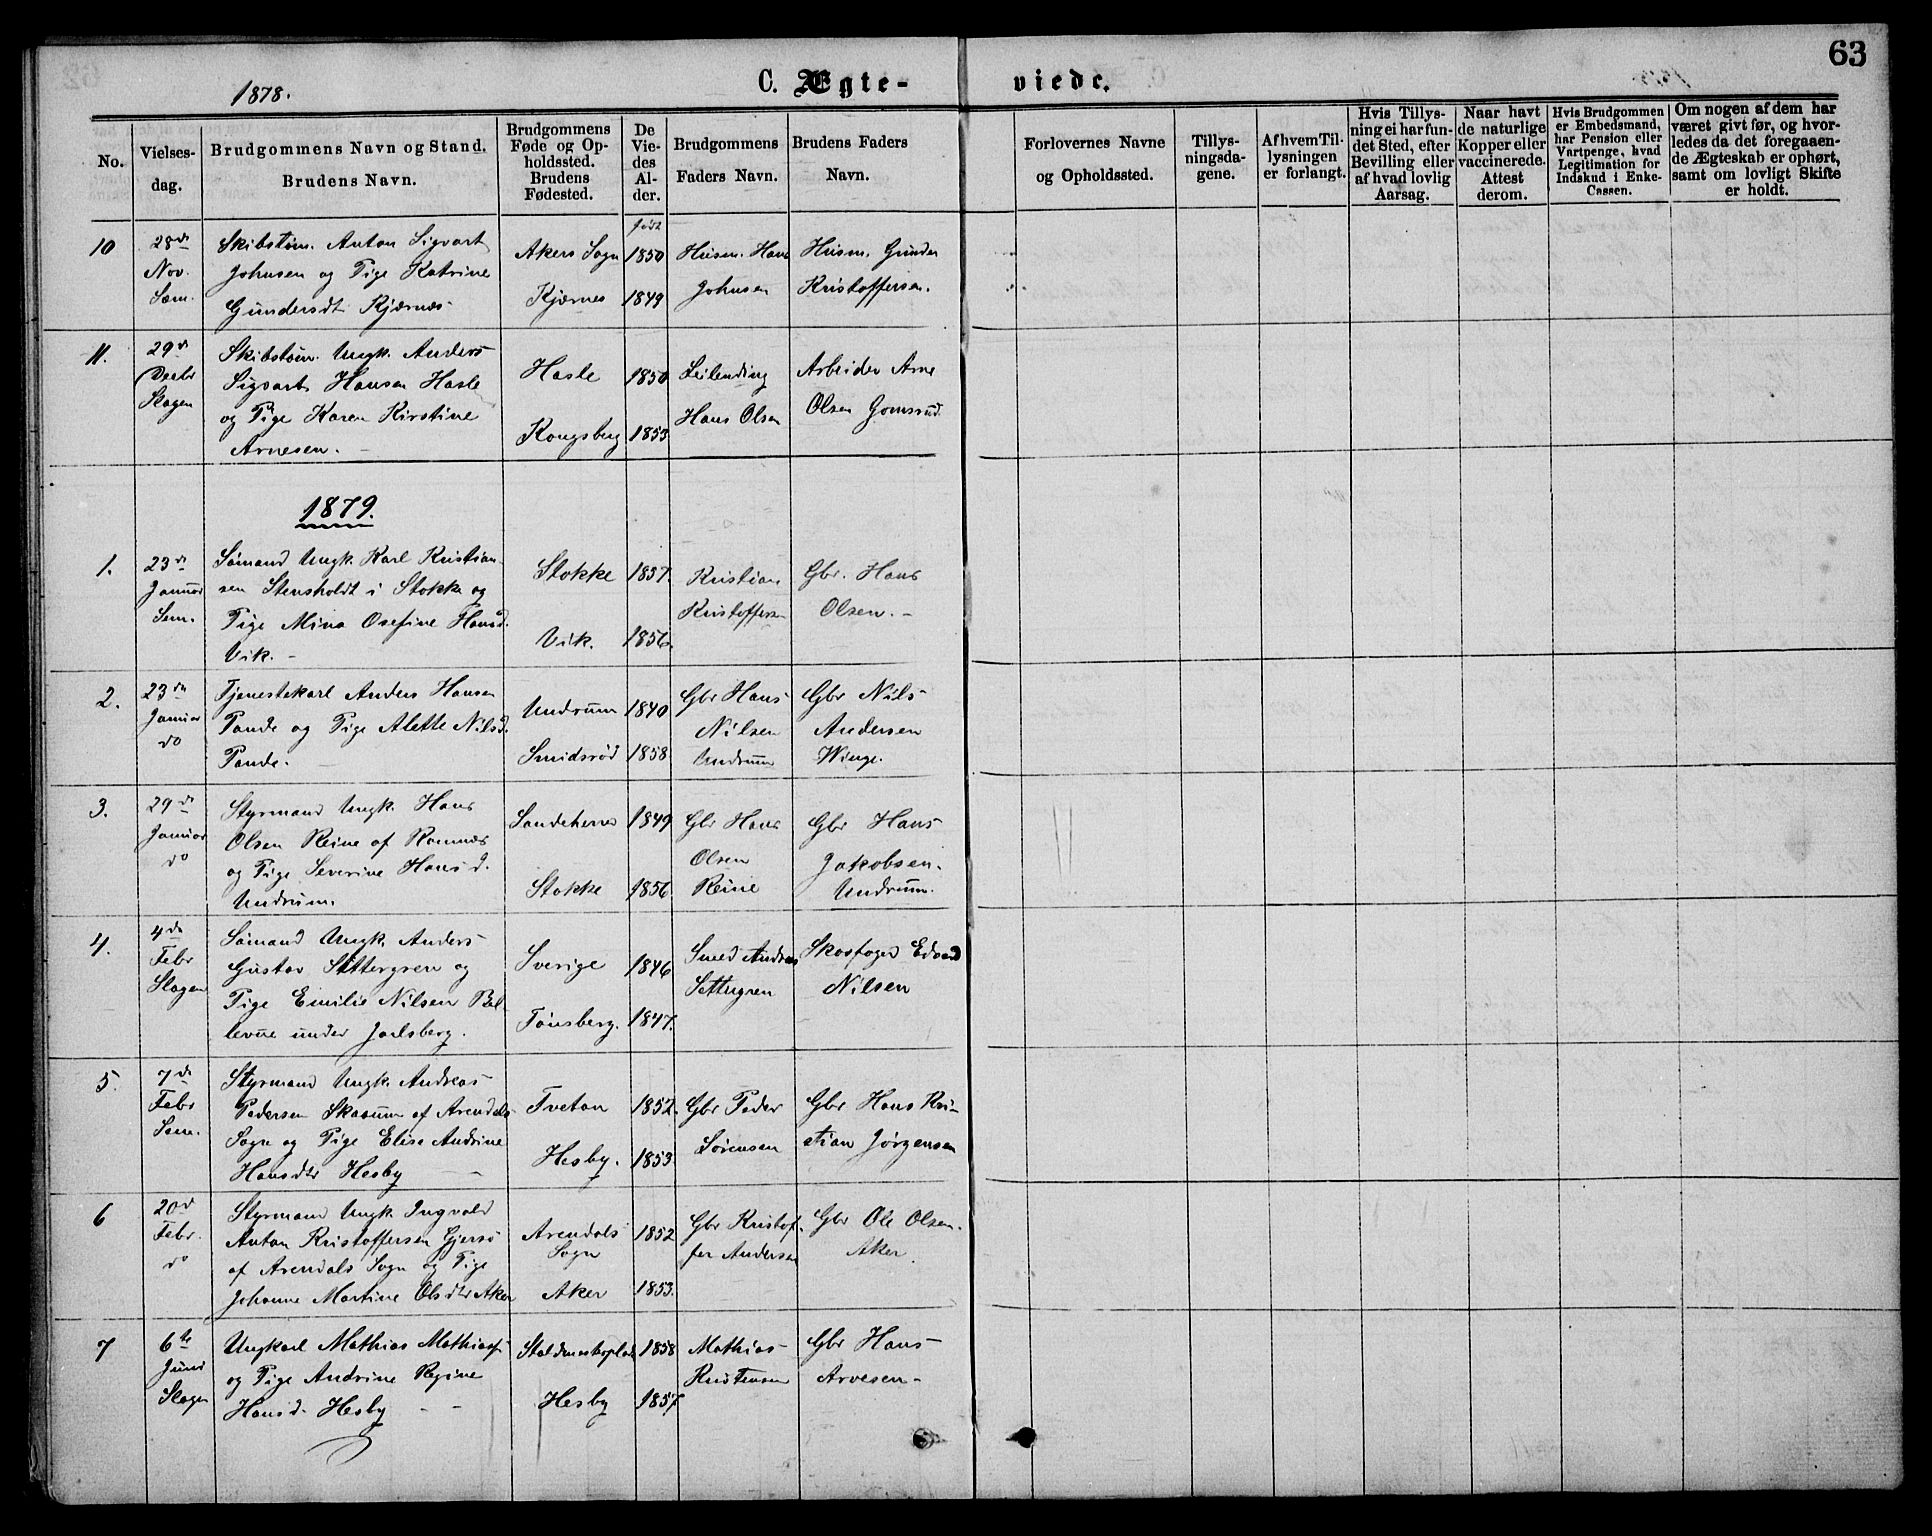 63
1878.
C. Ægte-
viede.
No.
Vielses-
dag.
Brudgommens Navn og Stand.
Brudens Navn.
Brudgommens
Føde og Op-
holdssted.
Brudens
Fødested.
De
Vie-
des
Al-
der.
Brudgommens
Faders Navn.
Brudens Faders
Navn.
Forlovernes Navne
og Opholdssted.
Tillys-
ningsda-
gene.
Af hvem Til-
lysningen
er forlangt.
Hvis Tillys-
ning ei har fun-
det Sted, efter
Bevilling eller
af hvad lovlig
Aarsag.
Naar havt
de naturlige
Kopper eller
vaccinerede.
Attest
derom.
Hvis Brudgommen
er Embedsmand,
har Pension eller
Vartpenge, hvad
Legitimation for
Indskud i Enke-
Cassen.
Om nogen af dem har
været givt før, og hvor-
ledes da det foregaaen-
de Ægteskab er ophørt,
samt om lovligt Skifte
er holdt.
10
28de
Nov.
Sem.
Skibstøm. Anton Sigvart
Johnsen og Pige Katrine
Gundersdt Kjærnæs
Akers Sogn
Kjærnes
født
1850
1849
Husm. Hans
Johnsen
Husm. Gunder
Kristoffersen.
11.
29de
Decbr
Slagen
Skibstøm. Ungk. Anders
Sigvart Hansen Hasle
og Pige Karen Kirstine
Arnesen.
Hasle
Kongsberg
1850
1853
Leilending
Hans Olsen
Arbeider Arne
Olsen Gomsrud.
1879.
1.
23de
Januar
Sem.
Sømand Ungk. Karl Kristian-
sen Stensholdt i Stokke og
Pige Mina Osefine Hansd.
Vik.
Stokke
Vik.
1857.
1856.
Kristian
Kristoffersen
Gbr. Hans
Olsen.
2.
23de
Januar
do
Tjenestekarl Anders Hansen
Tande og Pige Alette Nilsd.
Tande.
Undrum
Smidsrød
1840
1858
Gbr Hans
Nilsen
Undrum
Gbr Nils
Andersen
Winge.
3.
29de
Januar
do
Styrmand Ungk. Hans
Olsen Reine af Ramnæs
og Pige Severine Hansd.
Undrum.
Sandeherred
Stokke
1849
1856.
Gbr Hans
Olsen
Reine
Gbr Hans
Jakobsen
Undrum.
4.
4de
Febr
Slagen
Sømand Ungk. Anders
Gustav Settergren og
Pige Emilie Nilsen Bel-
levue under Jarlsberg.
Sverige
Tønsberg.
1846
1847.
Smed Andreas
Settergren
Skovfoged Edvard
Nilsen
5.
7de
Febr
Sem.
Styrmand Ungk. Andreas
Pedersen Skaaum af Arendals
Sogn og Pige Elise Andrine
Hansdtr Hesby
Tveten
Hesby.
1852.
1853.
Gbr Peder
Sørensen
Gbr Hans Kri-
stian Jørgensen
6
20de
Febr.
do
Styrmand Ungk. Ingvald
Anton Kristoffersen Gjersø
af Arendals Sogn og Pige
Johanne Martine Olsdtr Aker
Arendals
Sogn
Aker
1852
1853.
Gbr Kristof-
fer Andersen
Gbr Ole Olsen
Aker
7
6te
Juni
Slagen
Ungkarl Mathias Mathias
og Pige Andrine Regine
Hansd. Hesby
Hesby
1858
1857.
Mathias
Kristensen
Gbr Hans
Arvesen